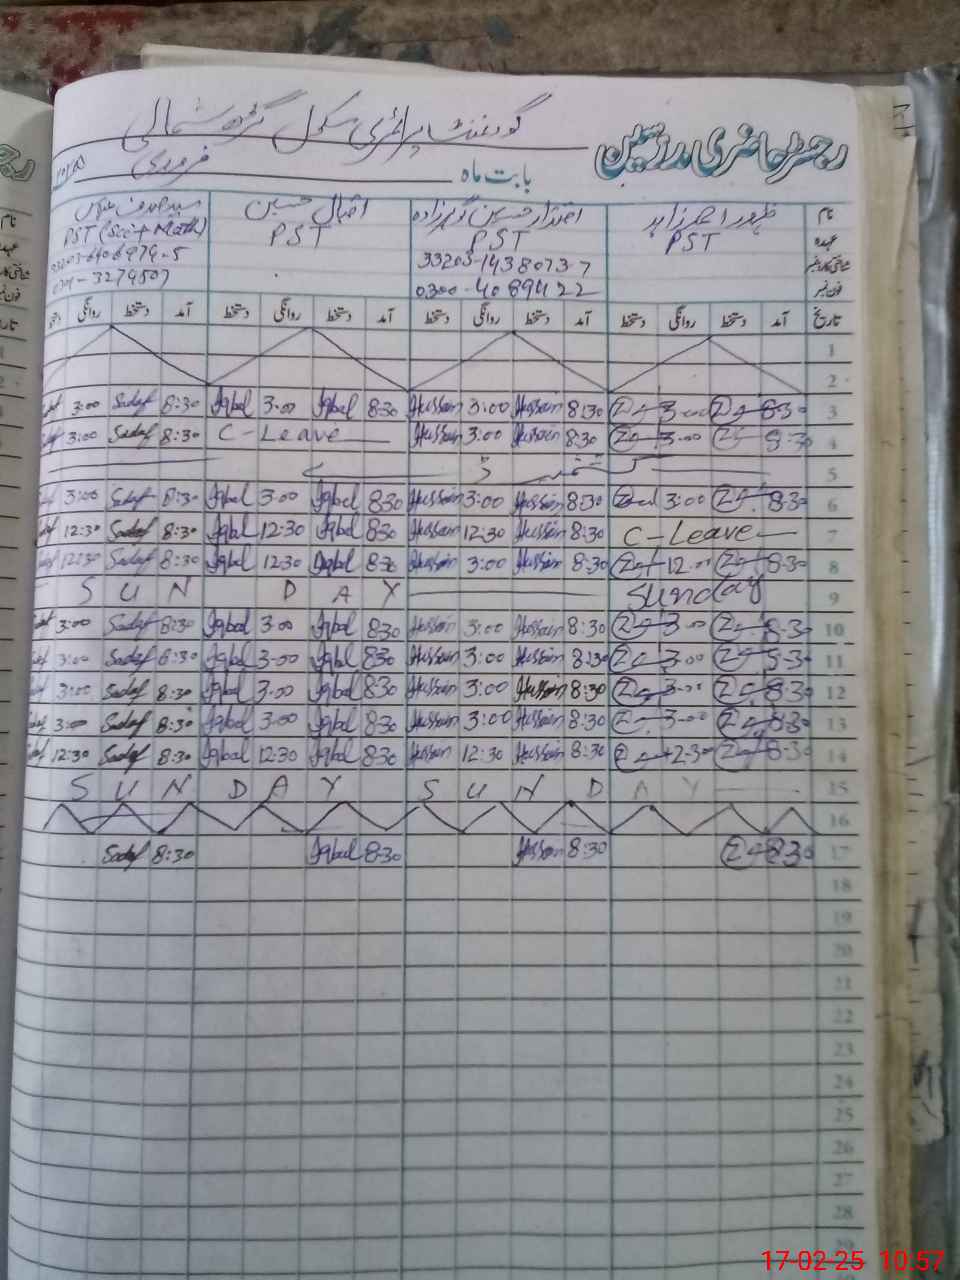 گورنمنٹ پرائمری سکول گڑھ شمالی
رجسٹر حاضری مدرسین
بابت ماہ فروری
نام ظہور احمد زاہد اقتدار حسین اقبال حسین
عہدہ PST PST PST PST (Sci+Math)
شناختی کارڈ نمبر 33203-1438073-7
فون نمبر 0300-4089422
تاریخ آمد دستخط روانگی دستخط آمد دستخط روانگی دستخط آمد دستخط روانگی دستخط آمد دستخط روانگی
1
2
3:00 Sadaf 8:30 Iqbal 3:00 Iqbal 8:30 Hussain 3:00 Hussain 8:30 3:00 8:30 3
3:00 Sadaf 8:30 C-Leave Hussain 3:00 Hussain 8:30 3:00 8:30 4
5
3:00 Sadaf 8:30 Iqbal 3:00 Iqbal 8:30 Hussain 3:00 Hussain 8:30 3:00 8:30 6
12:30 Sadaf 8:30 Iqbal 12:30 Iqbal 8:30 Hussain 12:30 Hussain 8:30 C-Leave 7
12:30 Sadaf 8:30 Iqbal 12:30 Iqbal 8:30 Hussain 3:00 Hussain 8:30 8:30 8
SUNDAY Sunday 9
3:00 Sadaf 8:30 Iqbal 3:00 Iqbal 8:30 Hussain 3:00 Hussain 8:30 3:00 8:30 10
3:00 Sadaf 8:30 Iqbal 3:00 Iqbal 8:30 Hussain 3:00 Hussain 8:30 3:00 8:30 11
3:00 Sadaf 8:30 Iqbal 3:00 Iqbal 8:30 Hussain 3:00 Hussain 8:30 3:00 8:30 12
3:00 Sadaf 8:30 Iqbal 3:00 Iqbal 8:30 Hussain 3:00 Hussain 8:30 3:00 8:30 13
12:30 Sadaf 8:30 Iqbal 12:30 Iqbal 8:30 Hussain 12:30 Hussain 8:30 8:30 14
SUNDAY SUNDAY 15
16
Sadaf 8:30 Iqbal 8:30 Hussain 8:30 8:30 17
18
19
20
21
22
23
24
25
26
27
28
29
17-02-25 10:57